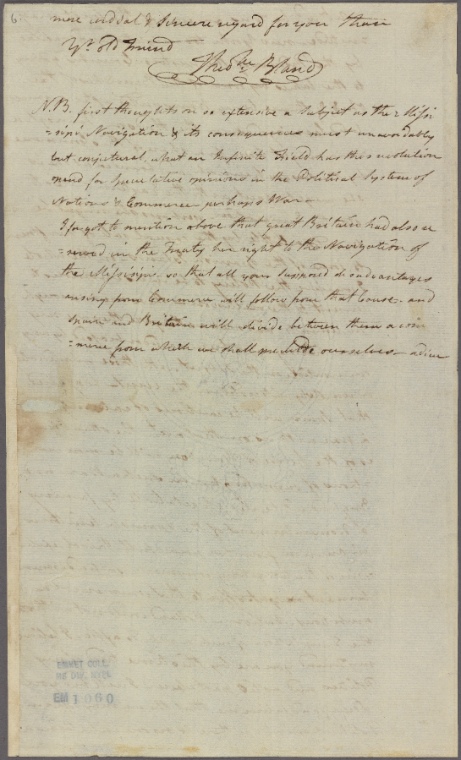 6
more cordial & sincere regard for you than
Yr. old friend
Theok. Bland
N.B. first thoughts on so extensive a subject as the Missi
=sipi Navigation & its consequences must unavoidably
but conjectural, what an Infinite Field has the revolution
opend for speculative minds in the Political System of
Nations & Commerce perhaps War.
I forgot to mention above that great Britain had also re
=served in the Treaty her right to the Navigation of
the Missisipi, so that all your supposed disadvantages
arising from Commerce will follow from that Course. and
Spain and Britain will divide between them a com
=merce from which we shall preclude ourselves — adieu
EMMET COLL.
MS DIV. NYPL
EM 1060